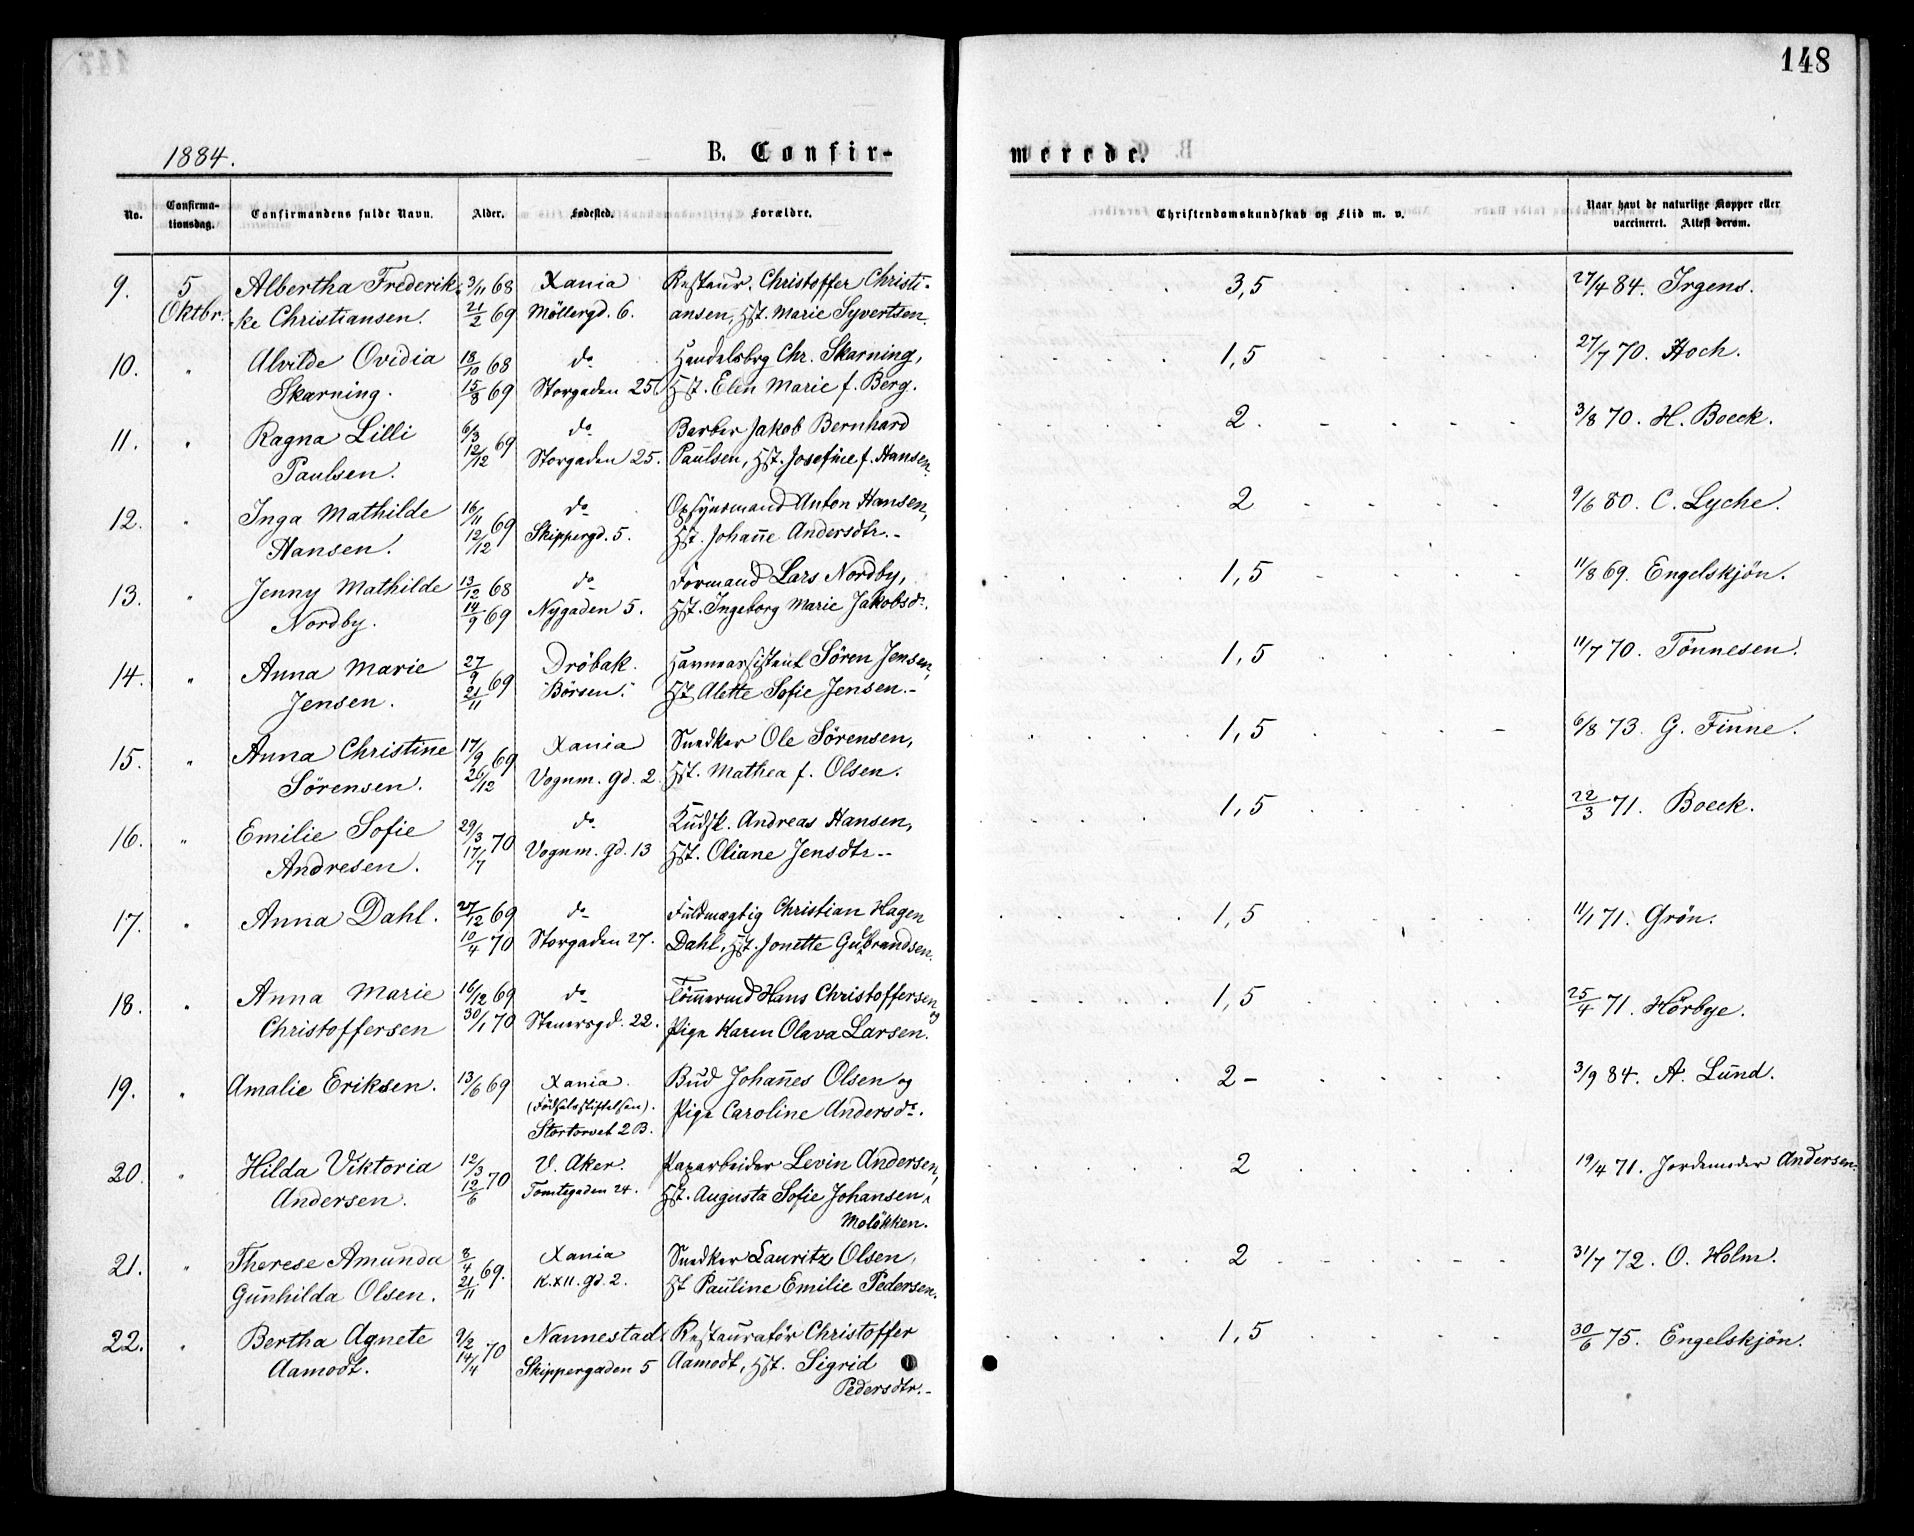 148
1884.
B. Confir-
merede.
No.
Confirma-
tionsdag.
Confirmandens fulde Navn.
Alder.
Fødested.
Forældre.
Christendomskundskab og Flid m. v.
Naar havt de naturlige Kopper eller
vaccineret. Attest derom.
9. 5 Albertha Frederik- 3/11 68 Xania Restaur. Christoffer Christi- 3,5 27/4 84. Irgens.
Oktbr. ke Christiansen. 21/2 69 Möllergd. 6. ansen, Hst. Marie Syvertsen.
10. " Alvilde Ovidia 18/10 68 do Handelsbrg Chr. Skarning, 1,5 27/7 70. Hoch.
Skarning. 15/8 69 Storgaden 25. Hst. Elen Marie f. Berg.
11. " Ragna Lilli 6/3 do Barber Jakob Bernhard 2 3/8 70. H. Boeck.
Paulsen. 12/12 69 Storgaden 25. Paulsen, Hst. Josefine f. Hansen.
12. " Inga Mathilde 16/11 do Opsynsmand Anton Hansen, 2 9/6 80. C. Lyche.
Hansen. 12/12 69 Skippergd. 5. Hst. Johan̄e Andersdtr.-
13. " Jenny Mathilde 13/12 68 do Formand Lars Nordby, 1,5 11/8 69. Engelskjön.
Nordby. 14/9 69 Nygaden 5. Hst. Ingeborg Marie Jakobsdr.
14. " Anna Marie 27/9 Dröbak. Havneassistent Sören Jensen, 1,5 11/7 70. Tönnesen.
Jensen. 21/11 69 "Börsen". Hst. Alette Sofie Jensen.-
15. " Anna Christine 17/9 Xania Snedker Ole Sörensen, 1,5 6/8 73. G. Finne.
Sörensen. 26/12 69 Vognm. gd. 2. Hst. Mathea f. Olsen.
16. " Emilie Sofie 29/3 do Kudsk. Andreas Hansen, 1,5 22/3 71. Boeck.
Andresen. 17/7 70 Vognm. gd. 13 Hst. Oliane Jensdtr--
17. " Anna Dahl. 27/12 69 do Fuldmægtig Christian Hagen 1,5 11/1 71. Grön.
10/4 70 Storgaden 27. Dahl, Hst. Jonette Gulbrandsen.
18. " Anna Marie 16/12 69 do Töm̄ermd Hans Christoffersen og 1,5 25/4 71. Hörbye.
Christoffersen 30/1 70 Stenersgd. 22. Pige Karen Olava Larsen.
19. " Amalie Eriksen. 13/6 69 Xania. Bud Johan̄es Olsen og 2- 3/9 84. A. Lund.
(Födselsstiftelsen). Pige Caroline Andersdr.
Stortorvet 2 B.
20. " Hilda Viktoria 12/3 V. Aker. Paparbeider Levin Andersen, 2 19/4 71. Jordemoder Andersen.
Andersen. 12/6 70 Tomtegaden 24. Hst. Augusta Sofie Johansen,
Molökken.
21. " Therese Amunda 8/4 Xania Snedker Lauritz Olsen, 2 31/7 72. O. Holm.
Gunhilda Olsen. 21/11 69. K. XII. gd. 2. Hst Pauline Emilie Pedersen.
22. " Bertha Agnete 9/2 Nannestad Restauratör Christoffer 1,5 30/6 75. Engelskjön.
Aamodt. 14/4 70 Skippergaden 5 Aamodt, Hst. Sigrid
Pedersdtr.-